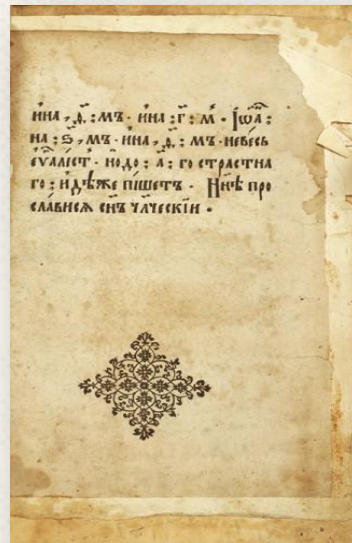 и҆на , д҃ : мъ · и҆на : г҃ : м҃ · Іѡ҃а :
на : ѕ҃ , мъ · и҆на , д҃ : мъ · невесь
еѵаліст · нодо : а҃ : го страстна
го : и҆дѣже пі́шетъ · Нн҃ѣ про
сла́висѧ сн҃ъ чл҃ческїи ·